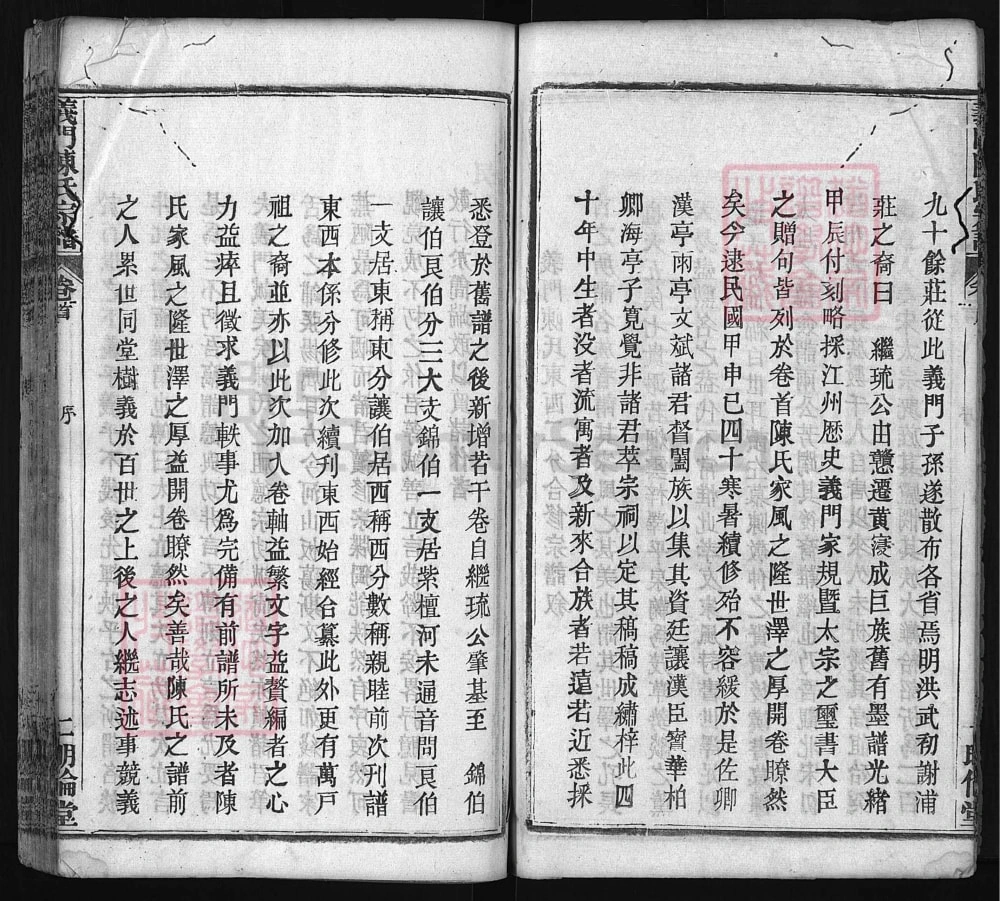 九十餘莊從此義門子孫遂散布各省焉明洪武初謝浦
莊之裔曰 繼琉公由戆遷黃濅成巨族舊有墨譜光緒
甲辰付刻略採江州歷史義門家規暨太宗之璽書大臣
之贈句皆列於卷首陳氏家風之隆世澤之厚開卷瞭然
矣今逮民國甲申已四十寒暑續修殆不容緩於是佐卿
漢亭雨亭文斌諸君督闔族以集其資廷讓漢臣寳華柏
卿海亭子寬覺非諸君萃宗祠以定其稿稿成繡梓此四
十年中生者没者流寓者及新來合族者若遠若近悉採
悉登於舊譜之後新增若干卷自繼琉公肇基至 錦伯
讓伯艮伯分三大支錦伯一支居紫檀河未通音問艮伯
一支居東稱東分讓伯居西稱西分數稱親睦前次刊譜
東西本係分修此次續刊東西始經合纂此外更有萬戸
祖之裔並亦以此次加入卷軸益繁文字益贅編者之心
力益瘁且徵求義門軼事尤爲完備有前譜所未及者陳
氏家風之隆世澤之厚益開卷瞭然矣善哉陳氏之譜前
之人累世同堂樹義於百世之上後之人繼志述事競義
義門陳氏宗譜 卷首 序 二 明倫堂